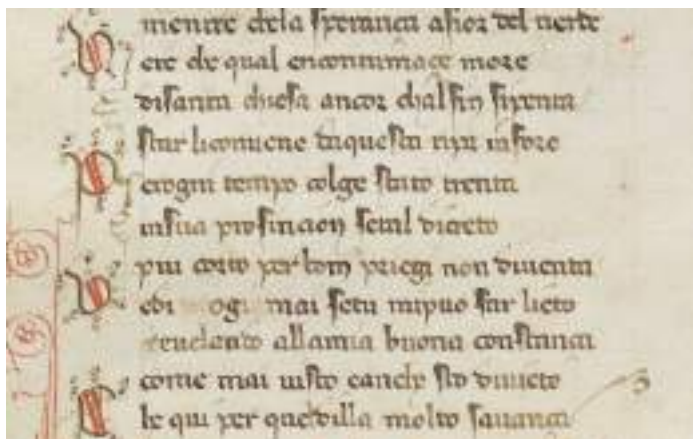 mentre chela speranca afior del uerde
Vere che qual encontumace more
disanta chiesa ancor chalfin sipenta
star liconuene daquesta ripa infore
Perogni tempo colge stato trenta
insua prosincion setal dicreto
piu corto per bom priegi non diuenta
Vedi ogi mai setu mipuo far lieto
reuelando allamia buona constanca
come mai uisto e sto diuieto
Che qui per que dilla molto sauanca